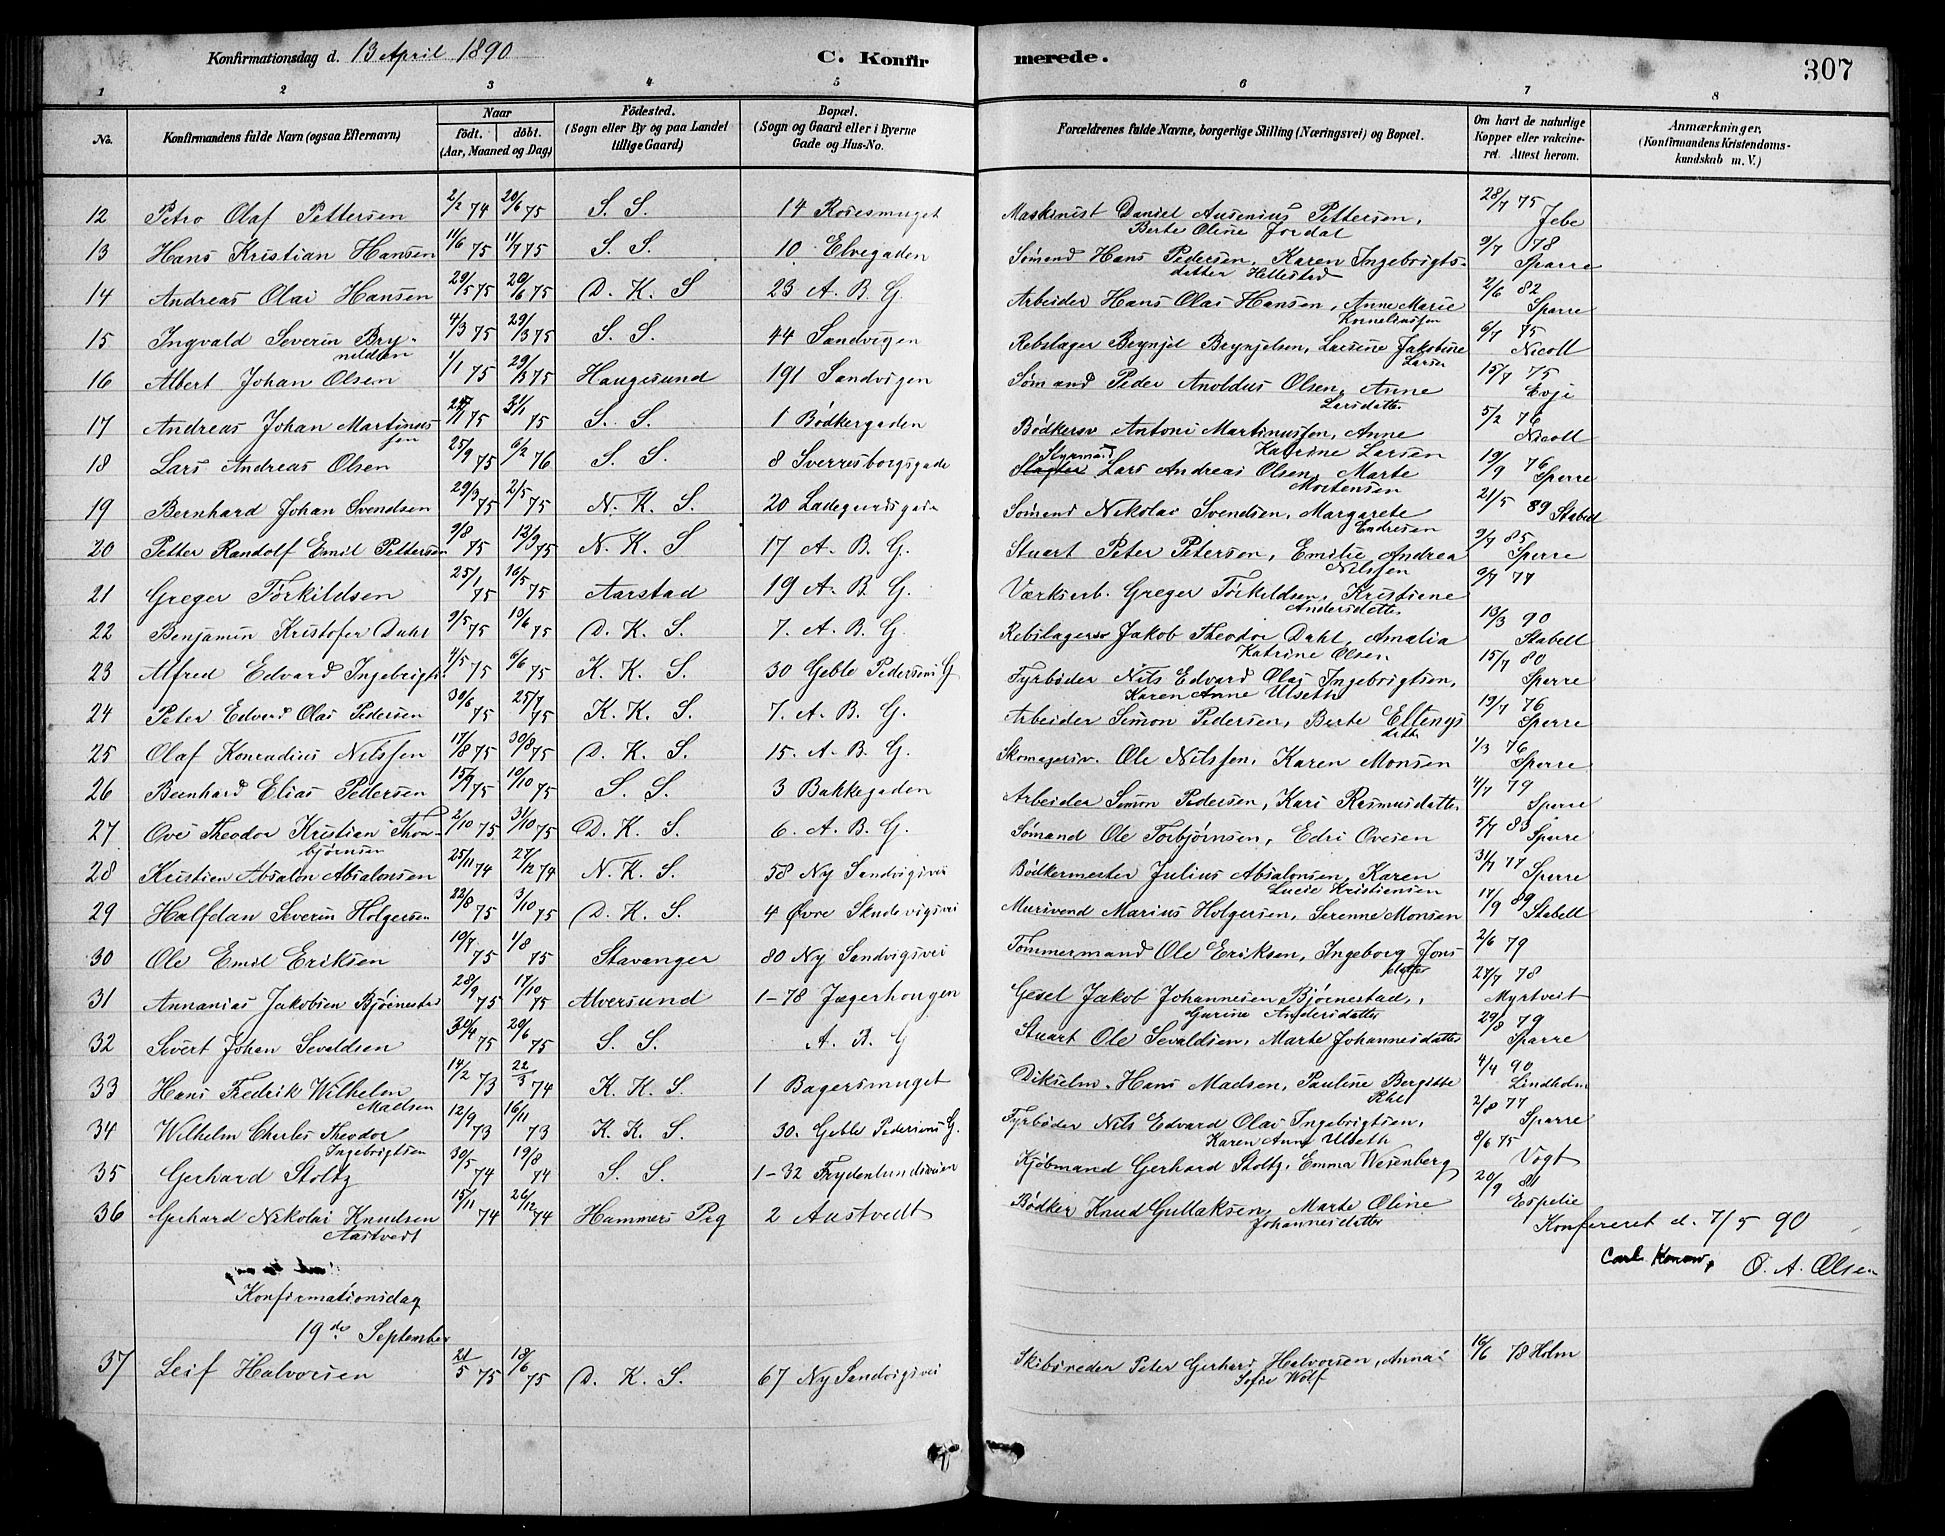 Konfirmationsdag d. 13 April 1890
C. Konfirmerede.
307
1 2 3 4 5 6 7 8
No.
Konfirmandens fulde Navn (ogsaa Efternavn)
Naar
födt. döbt.
(Aar, Maaned og Dag)
Födested.
(Sogn eller By og paa Landet
tillige Gaard)
Bopæl.
(Sogn og Gaard eller i Byerne
Gade og Hus-No.
Forældrenes fulde Navne, borgerlige Stilling (Næringsvei) og Bopæl.
Om havt de naturlige
Kopper eller vakcine-
ret. Attest herom.
Anmærkninger.
(Konfirmandens Kristendoms-
kundskab m. V.)
12 Petro Olaf Pettersen 2/2 74 20/6 75 S. S. 14 Rosesmuget Maskinist Daniel Ausenius Pettersen, 28/7 75 Jebe
Berte Oline Jordal
13 Hans Kristian Hansen 11/6 75 11/7 75 S. S. 10 Elvegaden Sømand Hans Pedersen, Karen Ingebrigts- 9/7 78 Sparre
datter Hellestad
14 Andreas Olai Hansen 29/5 75 20/6 75 D. K. S 23 A. B. G. Arbeider Hans Olai Hansen, Anne Marie 2/6 82 Sparre
Korneliussen
15 Ingvald Severin Bry- 4/3 75 29/3 75 S. S. 44 Sandvigen Rebslager Brynjel Brynjelsen, Larsine Jakobine 6/7 75 Nicoll
nildsen Larsen
16 Albert Johan Olsen 1/1 75 29/3 75 Haugesund 191 Sandvigen Sømand Peder Anoldus Olsen, Anne 15/7 75 Evje
Larsdatter
17 Andreas Johan Martinus 75 31/1 75 S. S. 1 Bødkergaden Bødkersv Antoni Martinussen, Anne 5/2 76 Nicoll
sen Katrine Larsen
18 Lars Andreas Olsen 25/9 75 6/2 76 S. S. 8 Sverresborgsgade Styrmand Lars Andreas Olsen, Marte 19/9 76 Sperre
Mortensen
19 Bernhard Johan Svendsen 29/3 75 2/5 75 N. K. S. 20 Ladegaardsgade Sømand Nikolai Svendsen, Margarete 21/5 89 Stabell
Endresen
20 Petter Randolf Emil Pettersen 9/8 75 12/9 75 N. K. S 17 A. B. G. Stuart Peter Peterson, Emilie Andrea 9/7 85 Sperre
Nilssen
21 Greger Torkildsen 25/1 75 16/5 75 Aarstad 19 A. B. G. Værkserb. Greger Torkildsen, Kristiene 9/7 77
Andersdatter
22 Benjamin Kristofer Dahl 9/5 75 13/6 75 D. K. S. 7. A. B. G. Rebslagersv Jakob Theodor Dahl, Amalia 13/3 90 Stabell
Katrine Olsen
23 Alfred Edvard Ingebrigts. 4/5 75 6/6 75 K. K. S. 30 Geble Pedersens G Fyrbøder Nils Edvard Olai Ingebrigtsen, 15/7 80 Sperre
Karen Anne Ulseth
24 Peter Edvard Olai Pedersen 30/6 75 25/7 75 K. K. S. 7. A. B. G. Arbeider Simon Pedersen, Berte Ellings 19/7 76 Sperre
dttr
25 Olaf Konradius Nilssen 17/8 75 30/8 75 D. K. S. 15. A. B. G. Skomagersv. Ole Nilssen, Karen Monsen 1/3 76 Sperre
26 Bernhard Elias Pedersen 15/9 75 10/10 75 S. S. 3 Bakkegaden Arbeider Simon Pedersen, Kari Rasmusdatter 4/7 79 Sperre
27 Ove Theodor Kristian Thor- 2/10 75 31/10 75 D. K. S. 6. A. B. G. Sømand Ole Torbjørnsen, Edri Ovesen 5/7 83 Sparre
bjørnsen
28 Kristien Absalon Absalonsen 25/11 74 27/12 74 N. K. S. 58 Ny Sandvigsvei Bødkermester Julius Absalonsen, Karen 31/7 77 Sperre
Lucie Kristiensen
29 Halfdan Severin Holgersen 22/8 75 3/10 75 D. K. S. 4 Øvre Skudevigsvei Mursvend Marius Holgersen, Serenne Monsen 17/9 89 Stabell
30 Ole Emil Eriksen 19/7 75 1/8 75 Stavanger 80 Ny Sandvigsvei Tømmermand Ole Eriksen, Ingeborg Jons 2/6 79
datter
31 Annanias Jakobsen Bjørnestad 28/9 75 17/10 75 Alversund 1-78 Jægerhougen Gesel Jakob Johannesen Bjørnestad, 27/7 78 Myrtveit
Gurine Andersdatter
32 Sivert Johan Sevaldsen 75 20/6 75 S. S. A. B. G Stuart Ole Sevaldsen, Marte Johannesdatter 29/8 79 Sparre
33 Hans Fredrik Wilhelm 14/2 73 22/3 74 K. K. S. 1 Bagersmuget Hans Madsen, Pauline Bergitte 4/4 90 Lindholm
Madsen
34 Wilhelm Charles Theodor 12/9 73 16/11 73 K. K. S. 30. Geble Pedersens G. Fyrbøder Nils Edvard Olai Ingebrigtsen, 2/8 77 Sparre
Ingebrigtsen Karen Anne Ulseth
35 Gerhard Stoltz 30/5 74 19/8 74 S. S. 1-32 Frydenlundsveien Kjøbmand Gerhard Stoltz, Emma Wesenberg 8/6 75 Vogt
36 Gerhard Nikolai Knudsen 15/11 74 26/12 74 Hammers Prg 2 Aastvedt Bødker Knud Gullaksen, Marte Oline 20/9 81 Espelie
Aastvedt Johannesdatter
Konfereret d. 7/5 90
Carl Konow, O. A. Olsen
Konfirmationsdag
19de September
37 Leif Halvorsen 21/5 75 18/6 75 D. K. S. 67 Ny Sandvigsvei Skibsreder Peter Gerhard Halvorsen, Anna 16/6 78 Holm
Sofie Wolf